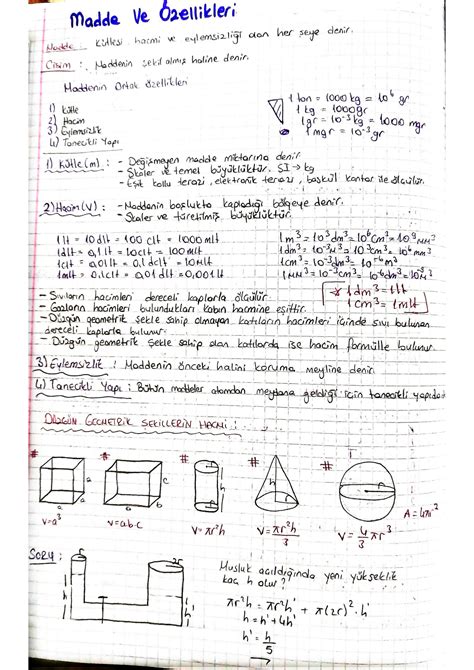 Madde Ve Özellikleri
Madde : Kütlesi hacmi ve eylemsizliği olan her şeye denir.
Cisim : Maddenin şekil almış haline denir.
Maddenin Ortak Özellikleri
1) Kütle
2) Hacim
3) Eylemsizlik
4) Tanecikli Yapı
1 ton = 1000 kg = 10⁶ gr
1 kg = 1000 gr
1 gr = 10⁻³ kg = 1000 mg
1 mgr = 10⁻³ gr
1) Kütle (m) : - Değişmeyen madde miktarına denir.
- Skaler ve temel büyüklüktür. SI → kg
- Eşit kollu terazi, elektronik terazi, baskül kantar ile ölçülür.
2) Hacim (V) : - Maddenin boşlukta kapladığı bölgeye denir.
- Skaler ve türetilmiş büyüklüktür.
1 lt = 10 dlt = 100 clt = 1000 mlt
1 dlt = 0,1 lt = 10 clt = 100 mlt
1 clt = 0,01 lt = 0,1 dlt = 10 mlt
1 mlt = 0,1 clt = 0,01 dlt = 0,001 lt
1 m³ = 10³ dm³ = 10⁶ cm³ = 10⁹ mm³
1 dm³ = 10⁻³ m³ = 10³ cm³ = 10⁶ mm³
1 cm³ = 10⁻³ dm³ = 10⁻⁶ m³
1 mm³ = 10⁻³ cm³ = 10⁻⁶ dm³
1 dm³ = 1 lt
1 cm³ = 1 mlt
- Sıvıların hacimleri dereceli kaplarla ölçülür.
- Gazların hacimleri bulundukları kabın hacmine eşittir.
- Düzgün geometrik şekle sahip olmayan katıların hacimleri içinde sıvı bulunan
dereceli kaplarla bulunur.
- Düzgün geometrik şekle sahip olan katılarda ise hacim formülle bulunur.
3) Eylemsizlik : Maddenin önceki halini koruma meyline denir.
4) Tanecikli Yapı : Bütün maddeler atomdan meydana geldiği için tanecikli yapıdadır
DÜZGÜN GEOMETRİK ŞEKİLLERİN HACMİ :
# # # # #
a a a
a b c
r h
h r
r
V = a³
V = a.b.c
V = πr²h
V = πr²h/3
V = 4/3 πr³
A = 4πr²
SORU :
r 2r
h h' h'
Musluk açıldığında yeni yükseklik
kaç h olur?
πr²h = πr²h' + π(2r)².h'
h = h' + 4h'
h' = h/5